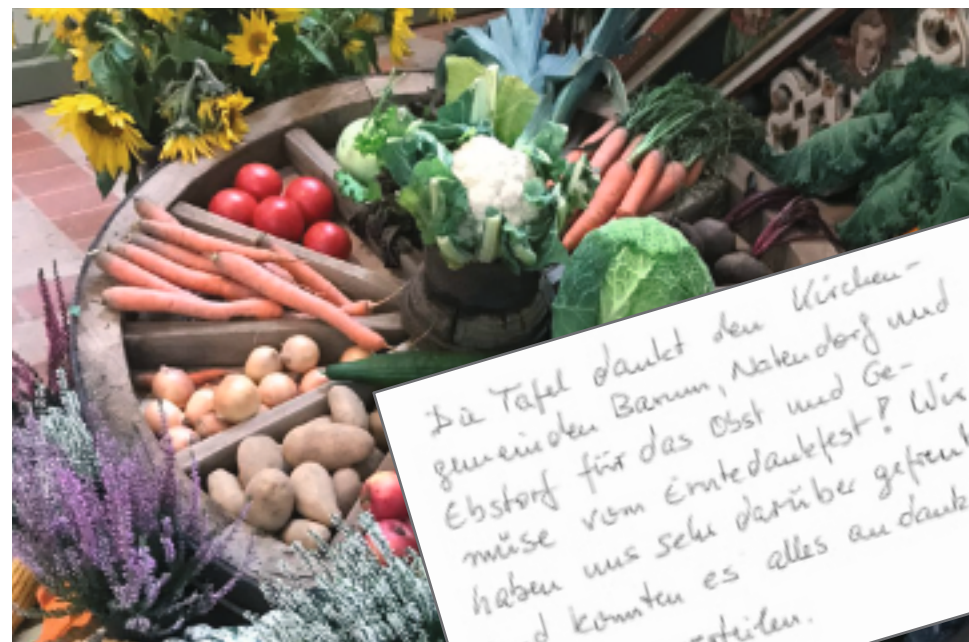 Die Tafel dankt den Kirchen-
gemeinden Barum, Natendorf und
Ebstorf für das Obst und Ge-
müse vom Erntedankfest! Wir
haben uns sehr darüber gefreut
konnten es alles an dank